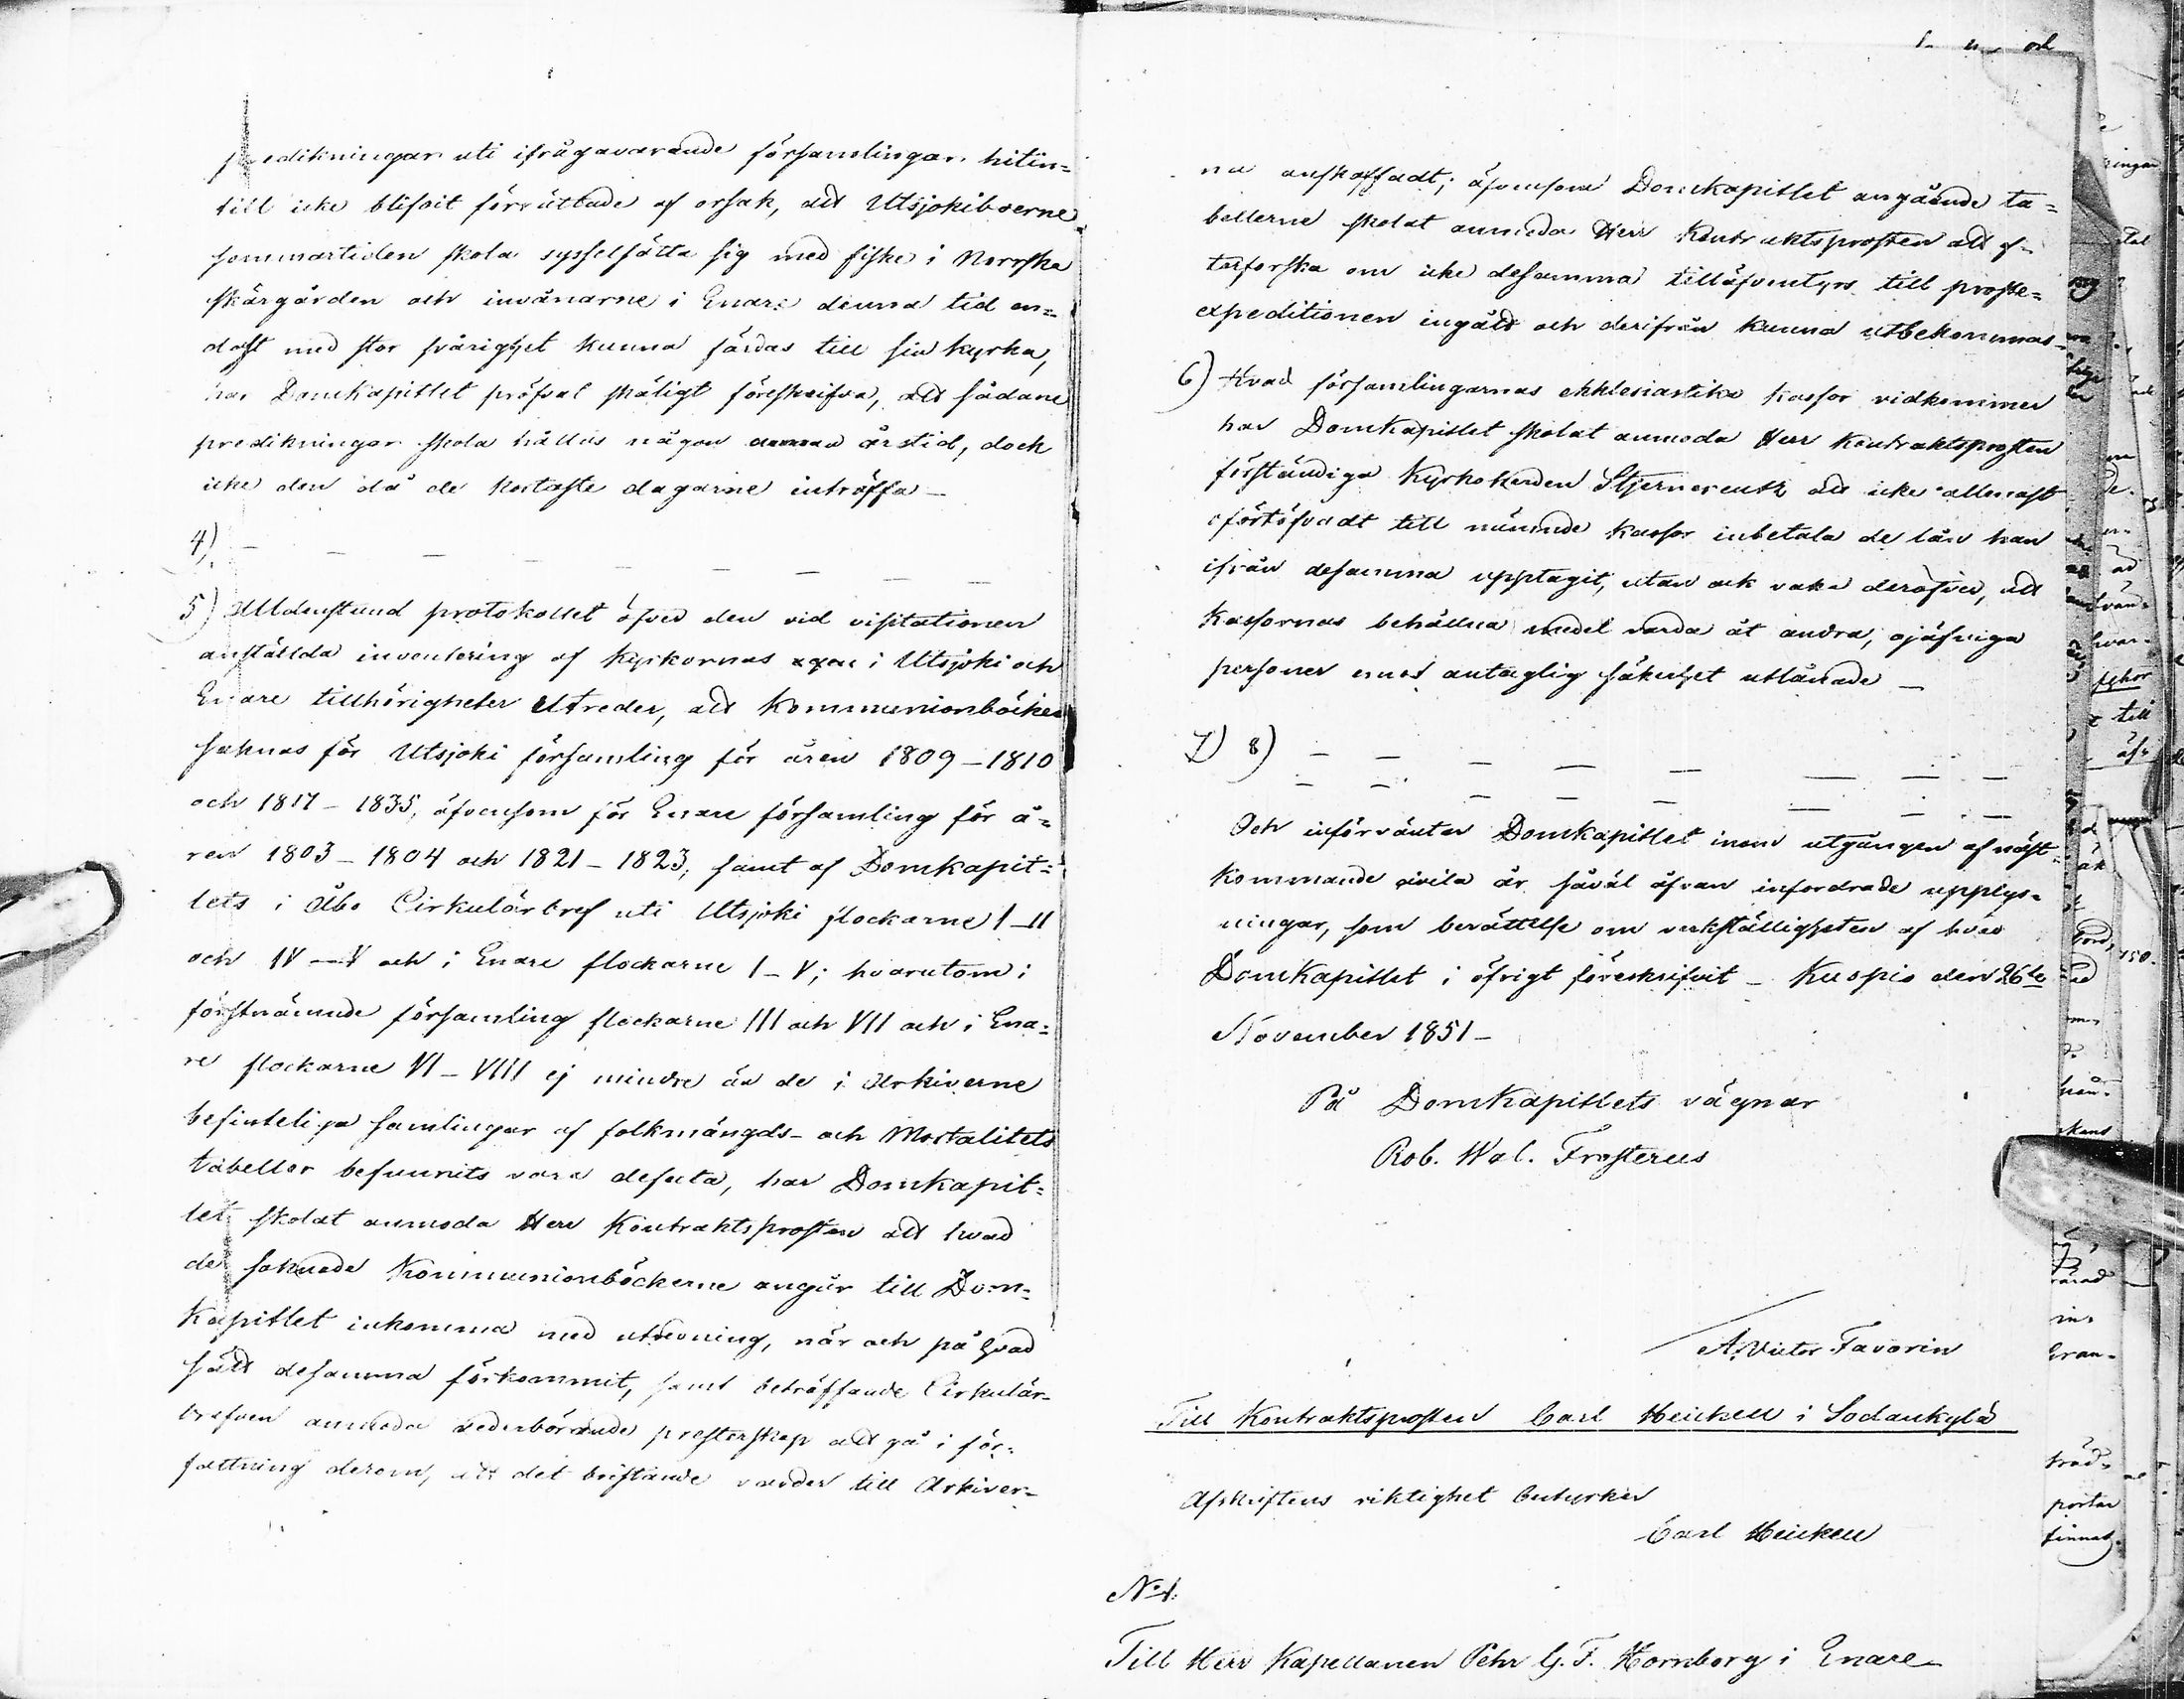 predikningar uti ifrågavarande församlingar hitin=
till icke blifvit förrättade af orsak, att Utsjokiboerne
sommartiden skola sysselsätta sig med fiske i Norrska
skärgården och invånarne i Enare denna tid en=
dast med stor svårighet kunna färdas till sin kyrka,
har Domkapitlet pröfvat skäligt föreskrifva, att sådane
predikningar skola hållas någon annan årstid, dock
icke den då de kortaste dagarne inträffa –
4) – – – – – – – –
5) Alldenstund protokollet öfver den vid visitationen
anställda inventering af kyrkornas i Utsjoki och
Enare tillhörigheter utreder, att kommunionböcker
saknas för Utsjoki församling för åren 1809–1810
och 1817–1835, äfvensom för Enare församling för å=
ren 1803–1804 och 1821–1823, samt af Domkapit=
lets i Åbo Cirkulärbref uti Utsjoki flockarne I–II
och IV–V och i Enare flockarne I–V; hvarutom i
förstnämnde församling flockarne III och VII och i Ena=
re flockarne VI–VIII ej mindre än de i Arkiverne
befinteliga samlingar af folkmängds- och Mortalitets
tabeller befunnits vara defecta, har Domkapit=
let skolat anmoda Herr Kontraktsprosten att hvad
de saknade Kommunionböckerne angår till Dom=
Kapitlet inkomma med utredning, när och på hvad
sätt desamma förkommit, samt beträffande Cirkulär-
brefven anmoda vederbörande presterskap att gå i för=
fattning derom, att det bristande varder till Arkiver=
na anskaffadt; äfvensom Domkapitlet angående ta=
bellerne skolat anmoda Herr Kontraktsprosten att ef=
terforska om icke desamma tilläfventyrs till proste=
expeditionen ingått och derifrån kunna utbekommas –
6) Hvad församlingarnas ekklesiastika kassor vidkommer
har Domkapitlet skolat anmoda Herr Kontraktsprosten
förständiga Kyrkoherden Stjernereutz att icke allenast
oförtöfvadt till nämnde kassor inbetala de lån han
ifrån desamma upptagit, utan ock vaka deröfver, att
Kassornas behållna medel varda åt andra, ojäfviga
personer emot antaglig säkerhet utlånade –
7) 8) – – – – – – – –
– – – – – – – –
Och införväntar Domkapitlet inom utgången af näst=
kommande civila år såväl äfvan infordrade upplys=
ningar, som berättelse om verkställigheten af hvad
DomKapitlet i öfrigt föreskrifvit – Kuopio den 26te
November 1851 –
På Domkapitlets vägnar
Rob. Wal. Frosterus
A. Victor Favorin
Till Kontraktsprosten Carl Heickell i Sodankylä
Afskriftens riktighet bestyrker
Carl Heickell
No 1.
Till Herr Kapellanen Pehr G. F. Hornborg i Enare